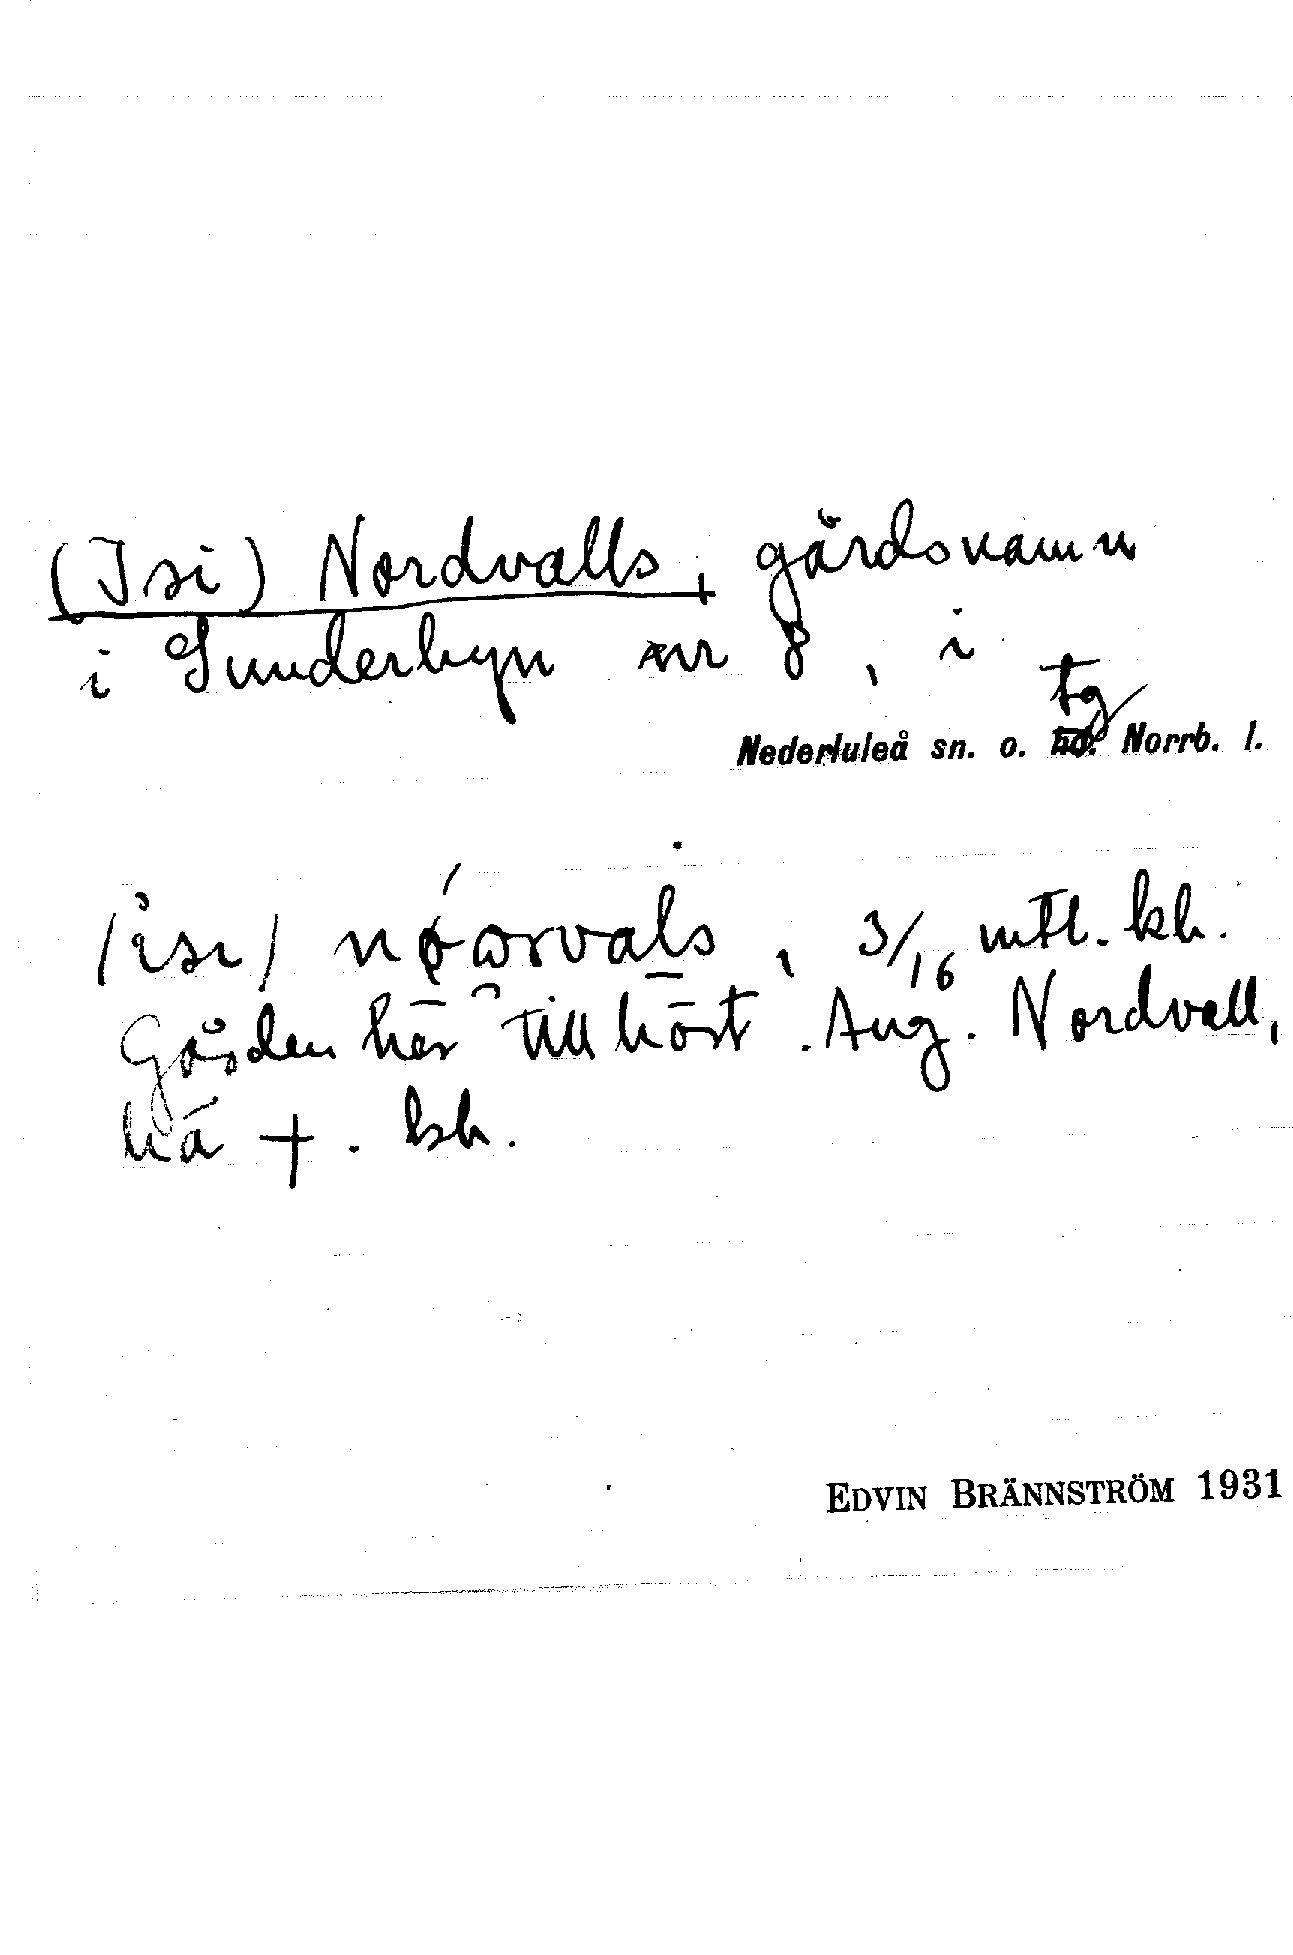 (Isi) Nordvalls, gårdsnamn
i Sunderbyn nr 8, i
tg
Nederluleå sn. o. hd. Norrb. l.
/isı/ nǿωrvals, 3/16 mtl. kh.
Gården har tillhört. Aug. Nordvall,
nä †. kh.
EDVIN BRÄNNSTRÖM 1931